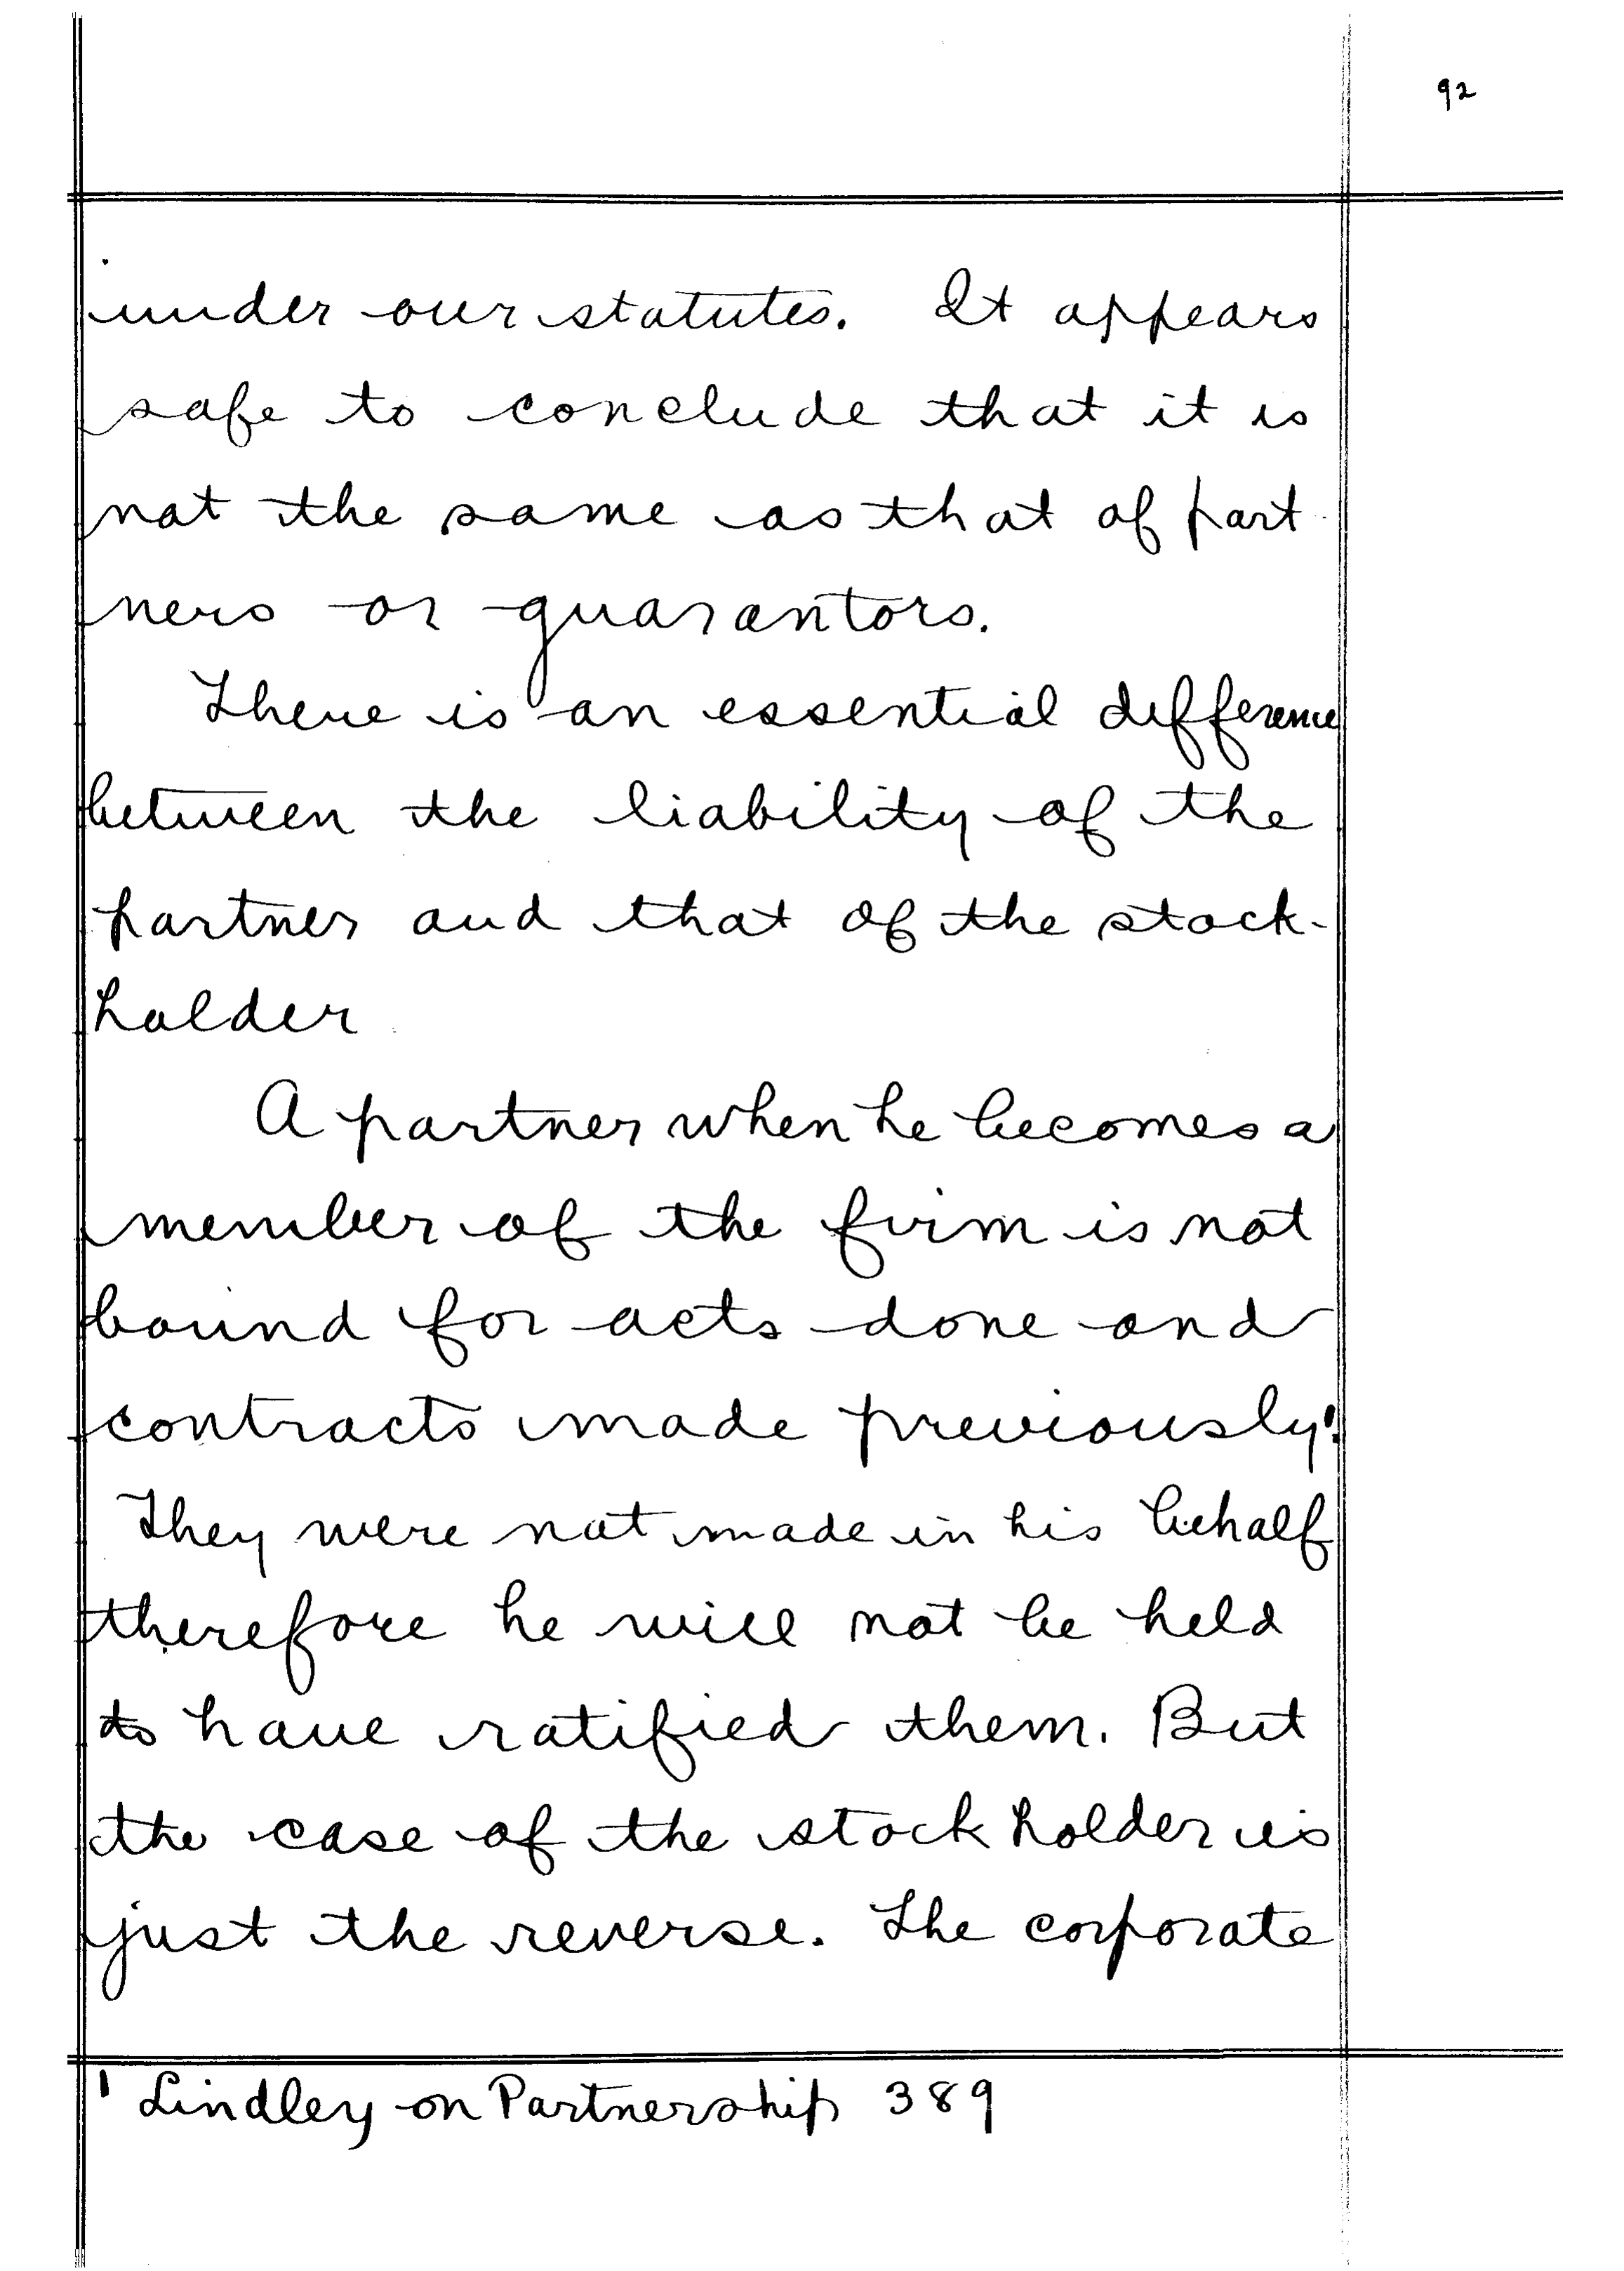 92
under our statutes. It appears
safe to conclude that it is
not the same as that of part
ners or guarantors.
There is an essential difference
between the liability of the
partner and that of the stock-
holder
A partner when he becomes a
member of the firm is not
bound for acts done and
contracts made previously.¹
They were not made in his behalf
therefore he will not be held
to have ratified them. But
the case of the stock holder is
just the reverse. The corporate
¹ Lindley on Partnership 389